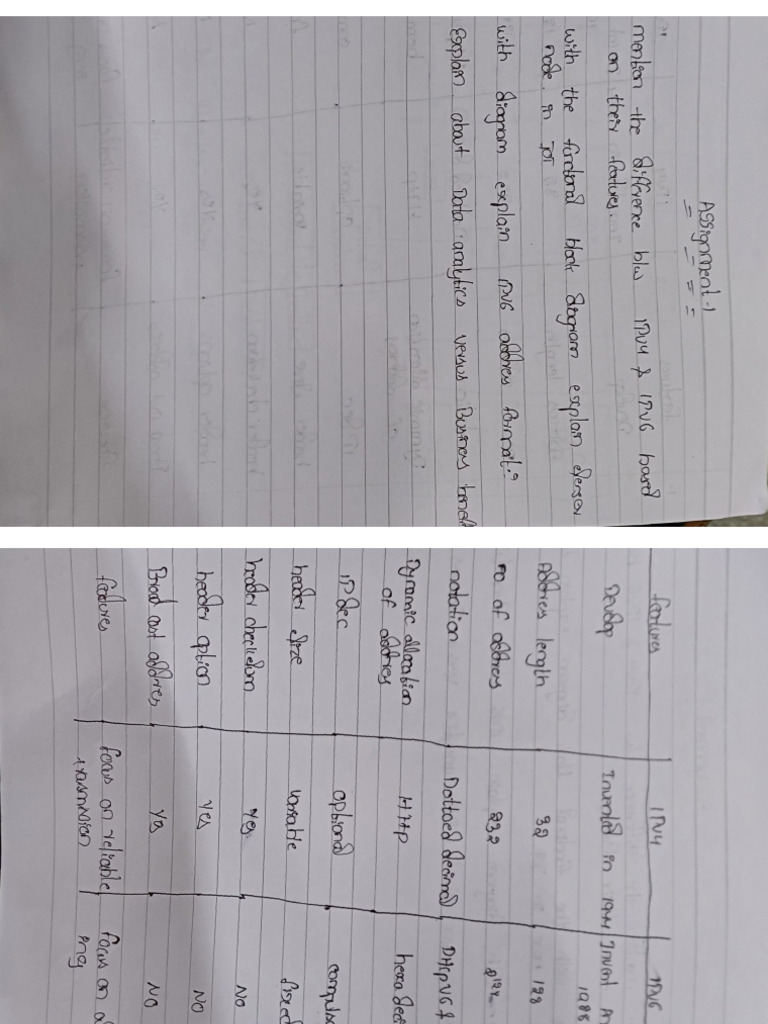 Assignment-1
mention the difference b/w IPV4 & IPV6 based
on their features.
with the functional block diagram explain sensor
node in IOT
with diagram explain IPV6 address format?
Explain about Data analytics versus Business
features IPV4 IPV6
Develop Invented in Invent
Address length 32 128
no of address 232 2128
notation Dottoed decimal DHcpV6 &
Dynamic allocation HTTP hexadec
of address
IPsec optional compuls
header size variable fixed
header checksum yes NO
header option yes NO
Broad cast address yes NO
features focus on reliable focus on
transmission